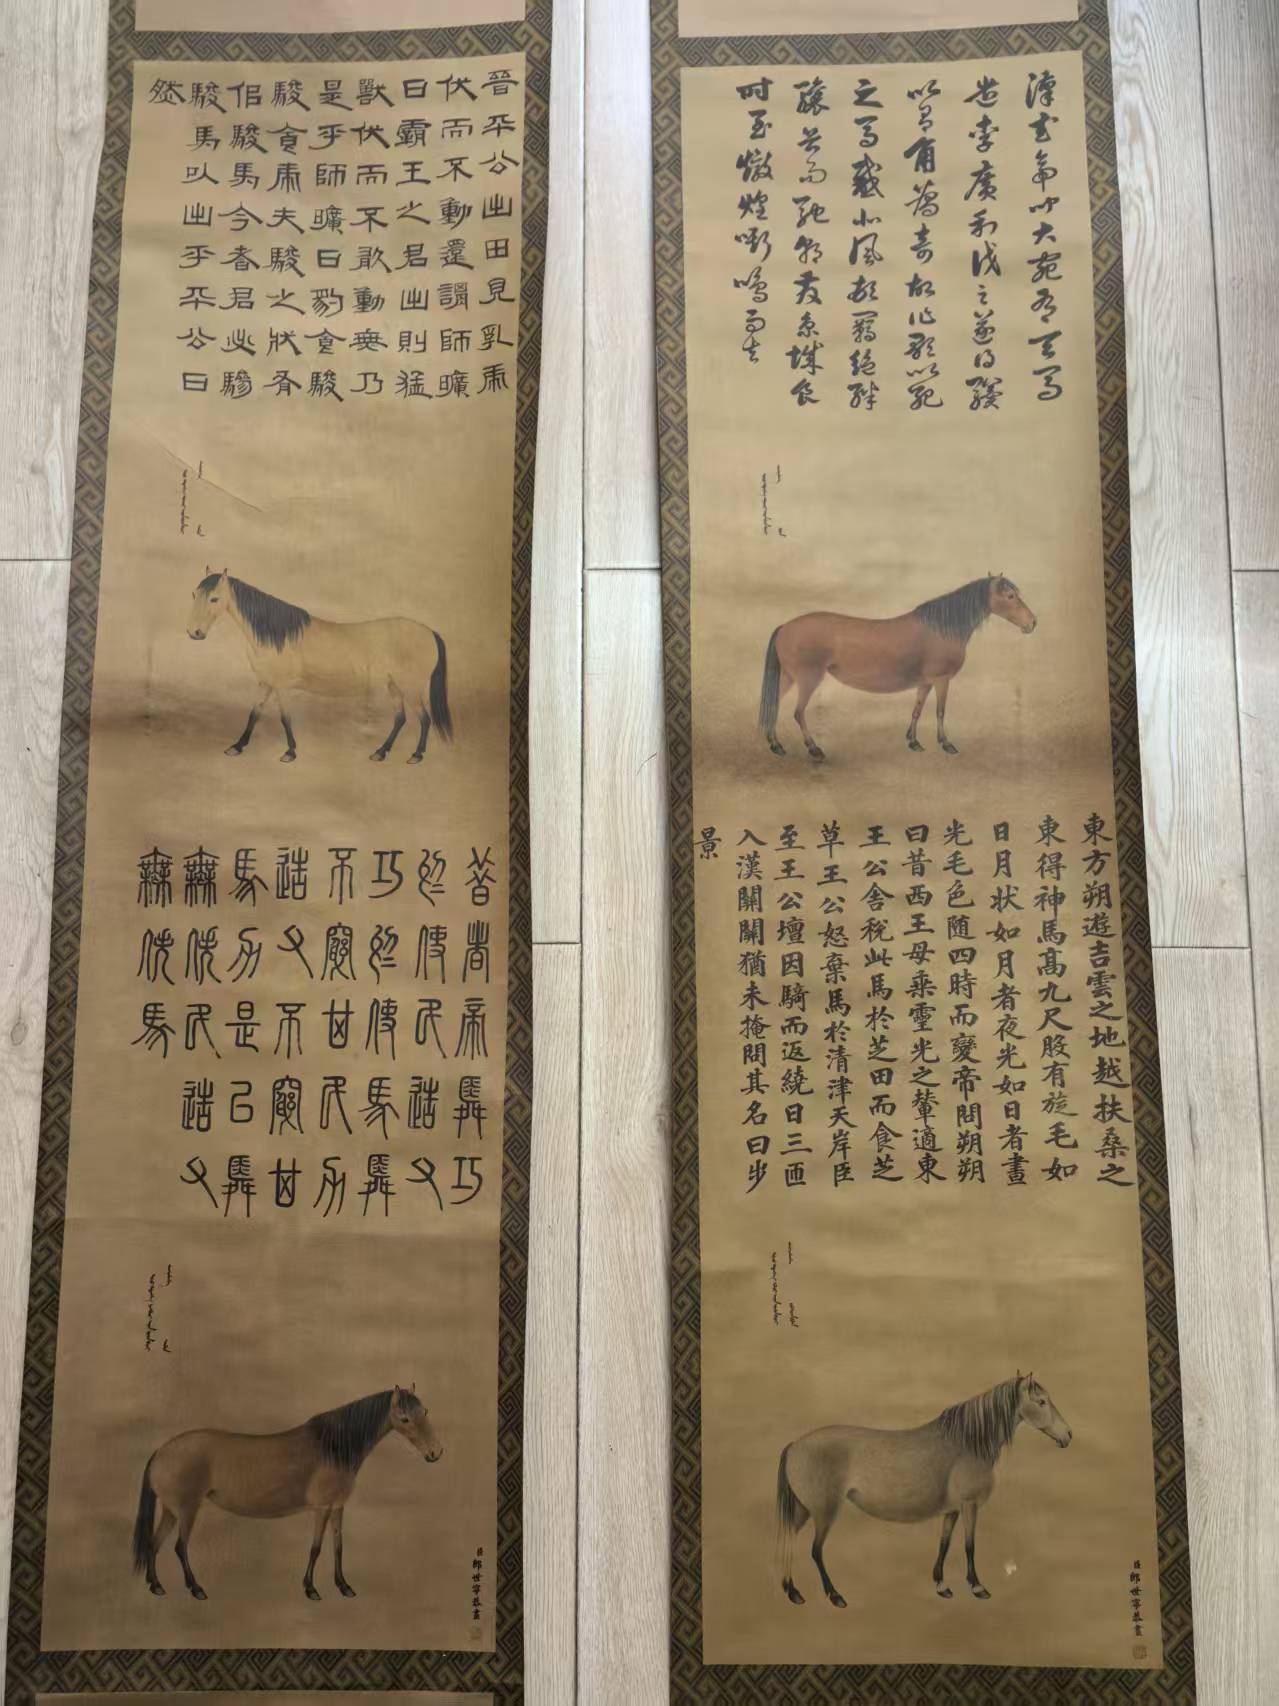 漢武帝聞大宛有天馬
遣李廣利伐之遂得駿
角為奇故作歌以
之馬感北風頓羈絕絆
驤首而馳朝發京城食
時至燉煌嘶鳴而去
東方朔遊吉雲之地越扶桑之
東得神馬高九尺股有旋毛如
日月狀如月者夜光如日者晝
光毛色随四時而變帝問朔朔
曰昔西王母乘靈光之輦適東
王公舍稅此馬於芝田而食芝
草王公怒棄馬於清津天岸臣
至王公壇因騎而返繞日三匝
入漢關關猶未掩問其名曰步
景
臣郎世寧恭畫
晉平公出田見乳虎
伏而不動還謂師曠
曰霸王之君出則猛
獸伏而不敢動無乃
是乎師曠曰豹食駿
駿食虎夫駿之狀有
佀駿馬今者君必驂
駿馬以出乎平公曰
然
昔者帝舜巧
於使民造父
巧於使馬舜
不窮其民力
造父不窮其
馬力是以舜
無佚民造父
無佚馬
臣郎世寧恭畫